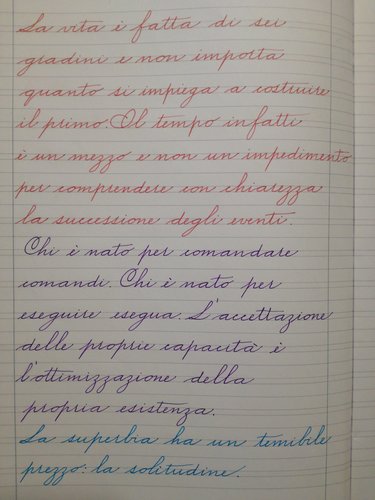 La vita è fatta di sei
gradini e non importa
quanto si impiega a costruire
il primo. Il tempo infatti
è un mezzo e non un impedimento
per comprendere con chiarezza
la successione degli eventi.
Chi è nato per comandare
comandi. Chi è nato per
eseguire esegua. L'accettazione
delle proprie capacità è
l'ottimizzazione della
propria esistenza.
La superbia ha un temibile
prezzo: la solitudine.